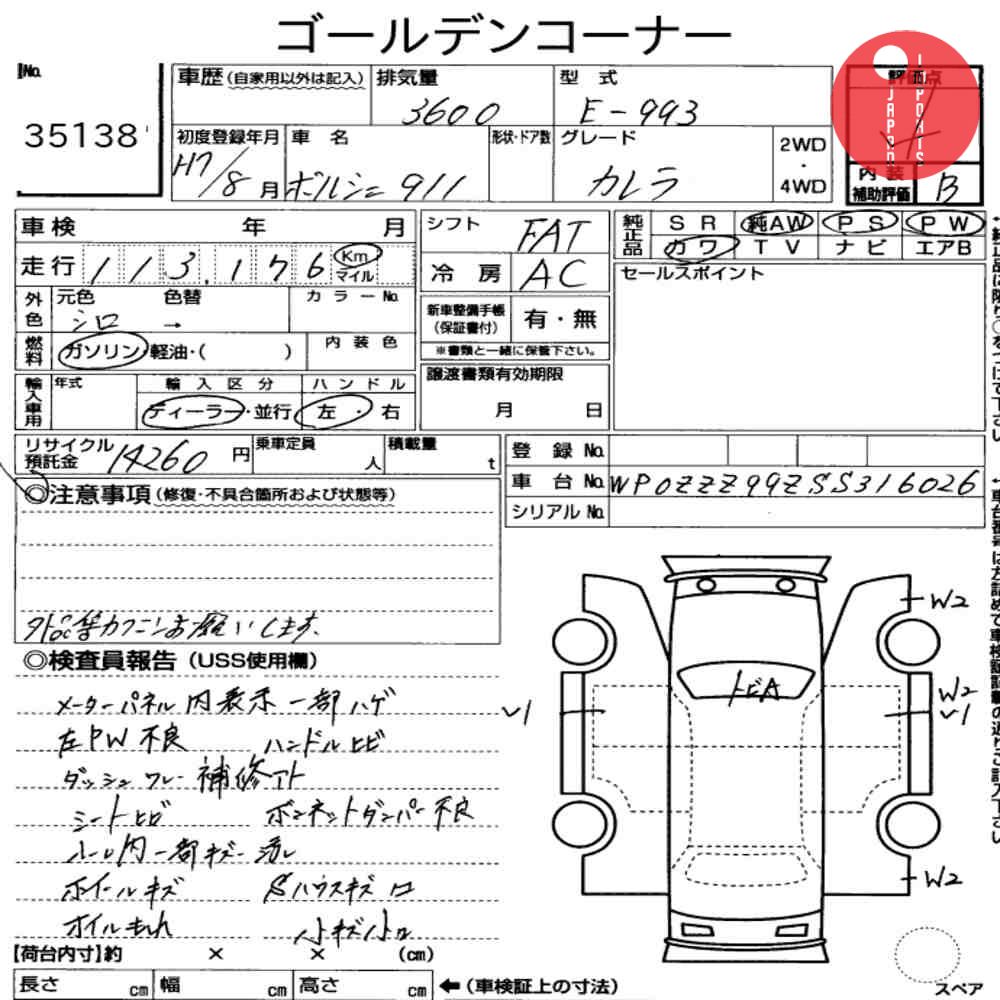 ゴールデンコーナー
No.
35138
車歴 (自家用以外は記入)
排気量
3600
型 式
E-993
評価点
JAPAN IMPORTS
初度登録年月
H7/8 月
車 名
ポルシェ 911
形状・ドア数
グレード
カレラ
2WD
・
4WD
内 装
補助評価
B
車検 年 月
シフト
FAT
純正品
SR 純AW PS PW
カワ TV ナビ エアB
走行 113,176 Km
マイル
冷 房
AC
セールスポイント
外色
元色 色替
シロ →
カラーNo.
新車整備手帳
(保証書付)
有・無
※書類と一緒に保管下さい。
燃料
ガソリン・軽油・( )
内 装 色
譲渡書類有効期限
月 日
輸入車用
年式
輸 入 区 分
ディーラー・並行
ハ ン ド ル
左 ・ 右
リサイクル
預託金
14260 円
乗車定員
人
積載量
t
登 録 No.
車 台 No.
WP0ZZZ99ZSS316026
シリアル No.
◎注意事項 (修復・不具合箇所および状態等)
お願いします.
◎検査員報告 (USS使用欄)
メーターパネル内表示一部ハゲ
左PW不良 ハンドルヒビ
ダッシュ ワレー補修アト
シートヒビ ボンネットダンパー不良
ホイールキズ
オイルもれ
W2
トビA
W2
V1
V1
W2
【荷台内寸】約 × × (cm)
長さ cm 幅 cm 高さ cm ←(車検証上の寸法)
スペア